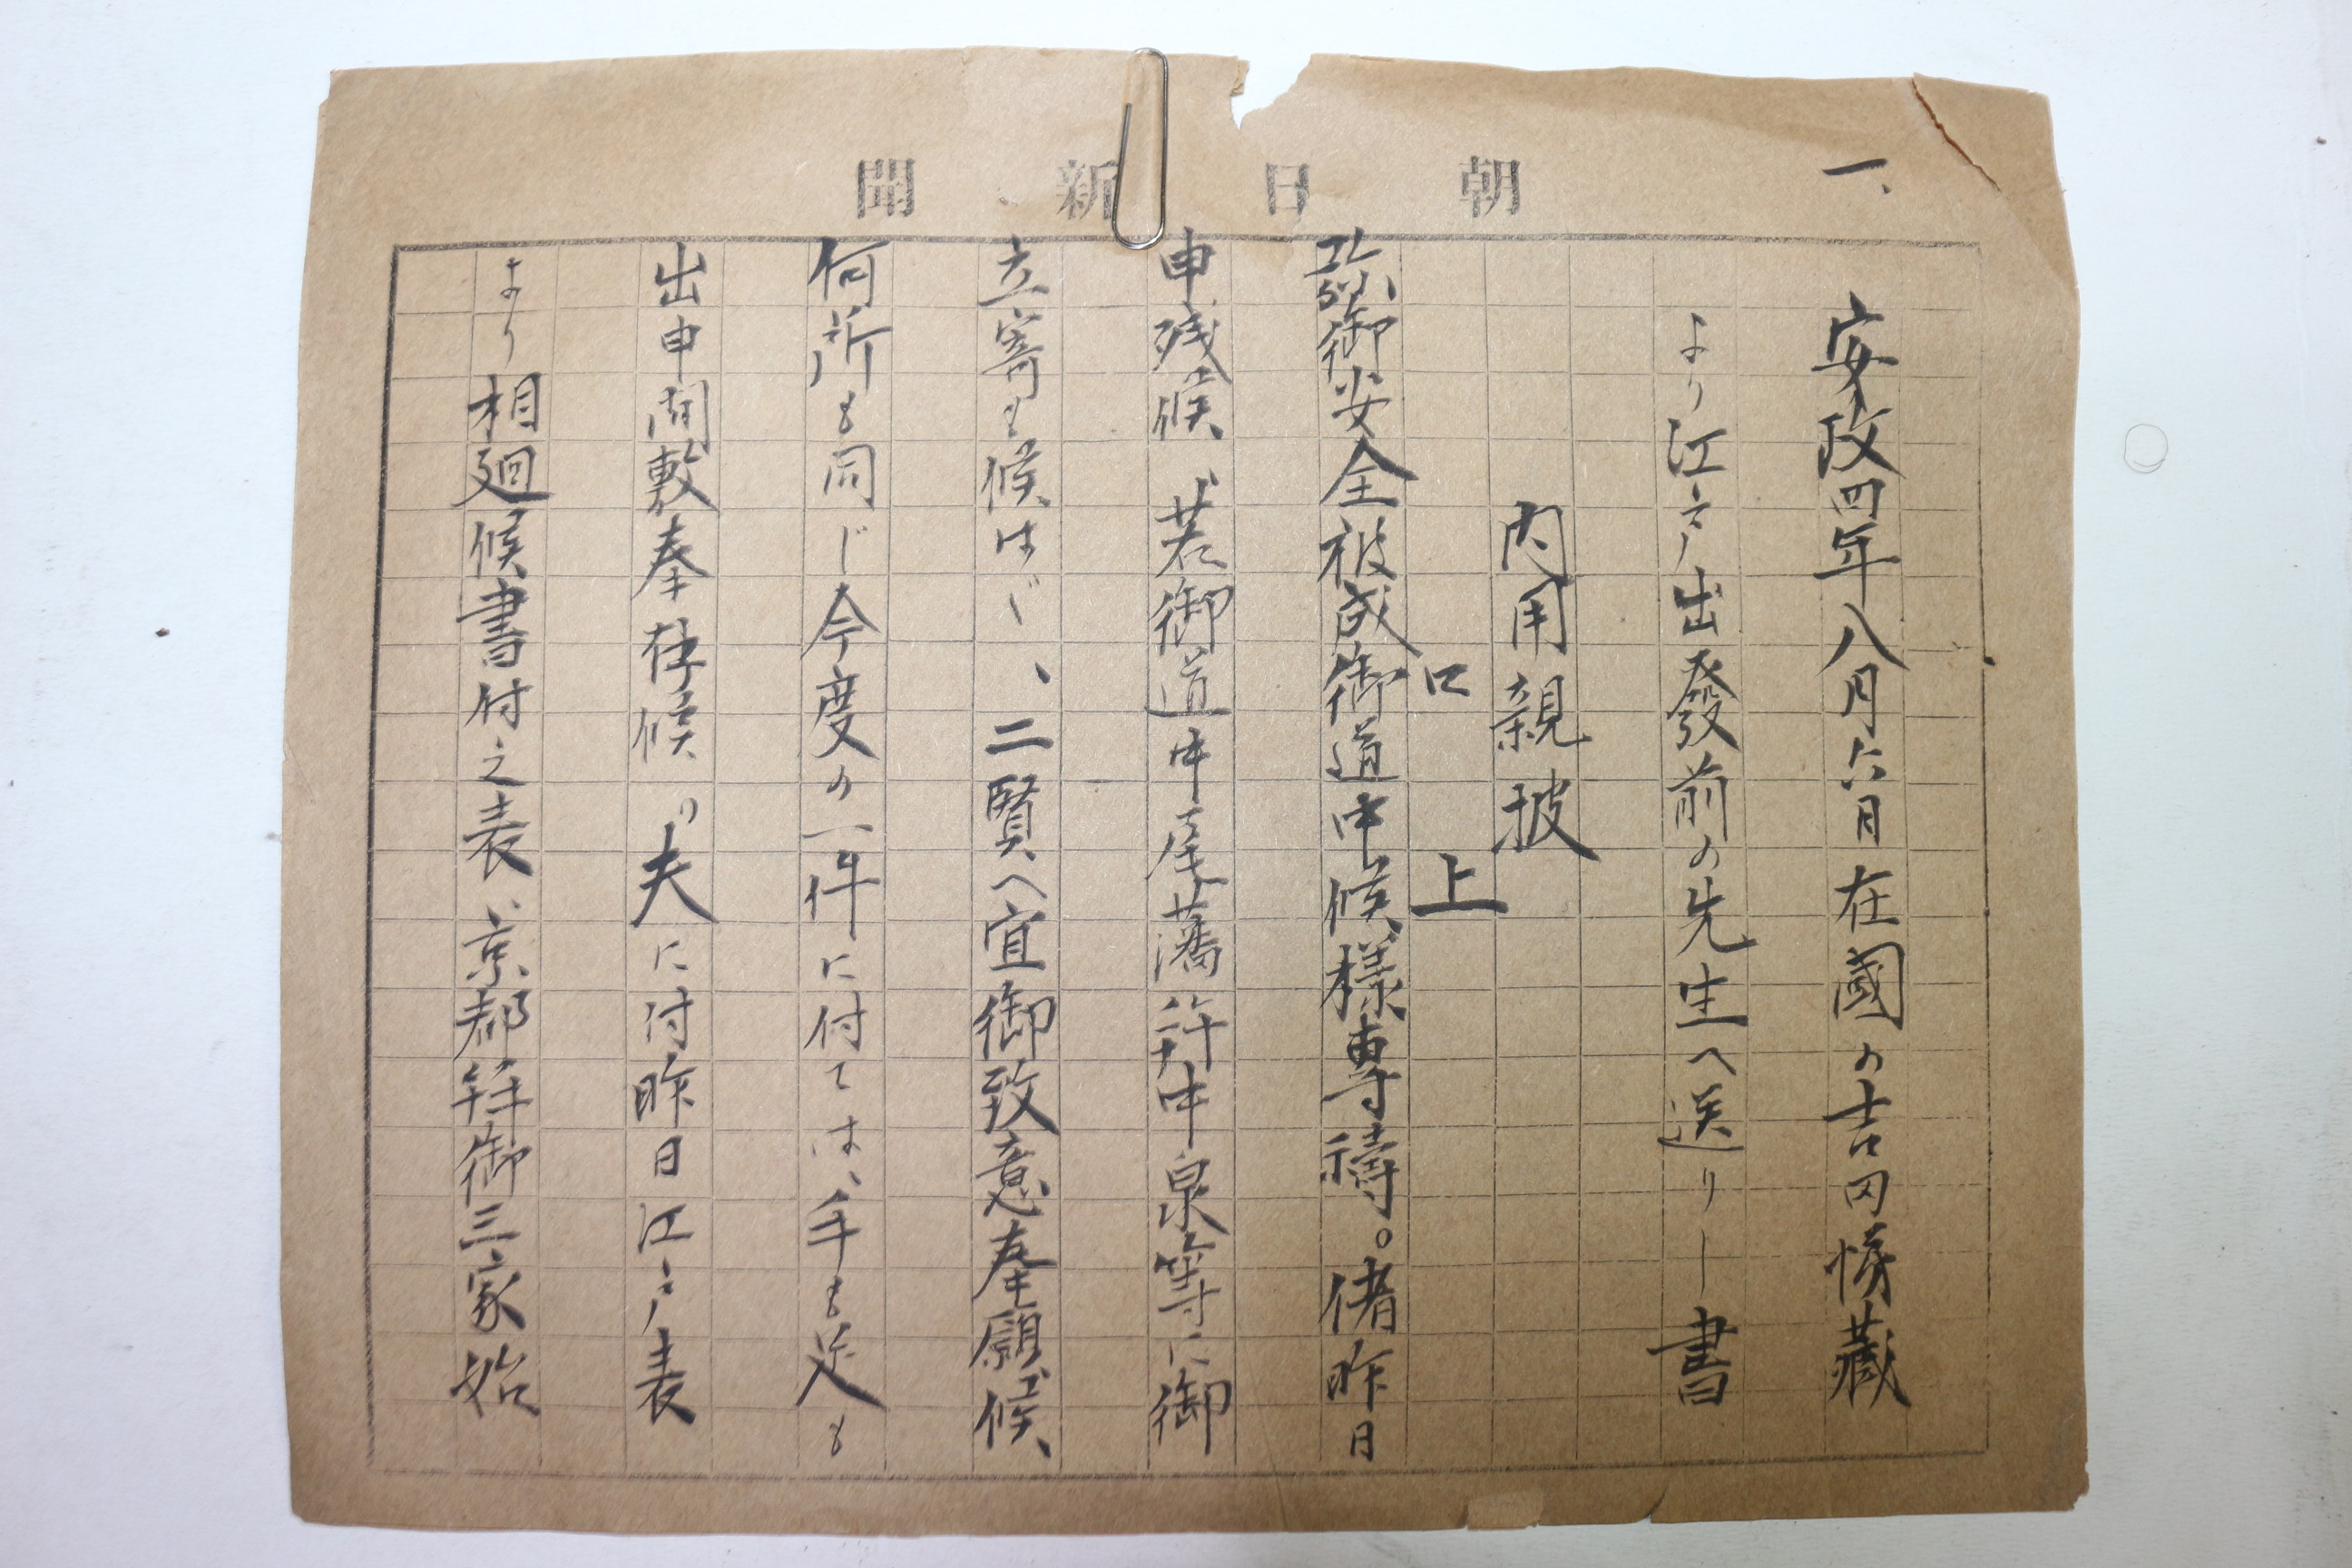 朝日新聞
一、
安政四年八月六日在國の吉田悌藏
より江戸出發前の先生へ送りし書
内用親披
口上
益御安全被成御道中候樣專禱。偖昨日
申殘候、若御道中尾藩幷中泉等に御
立寄も候はゞ、二賢へ宜御致意奉願候、
何所も同じ今度の一件に付ては、手も足も
出申間敷奉存候。夫に付昨日江戸表
より相廻候書付之表、京都幷御三家始